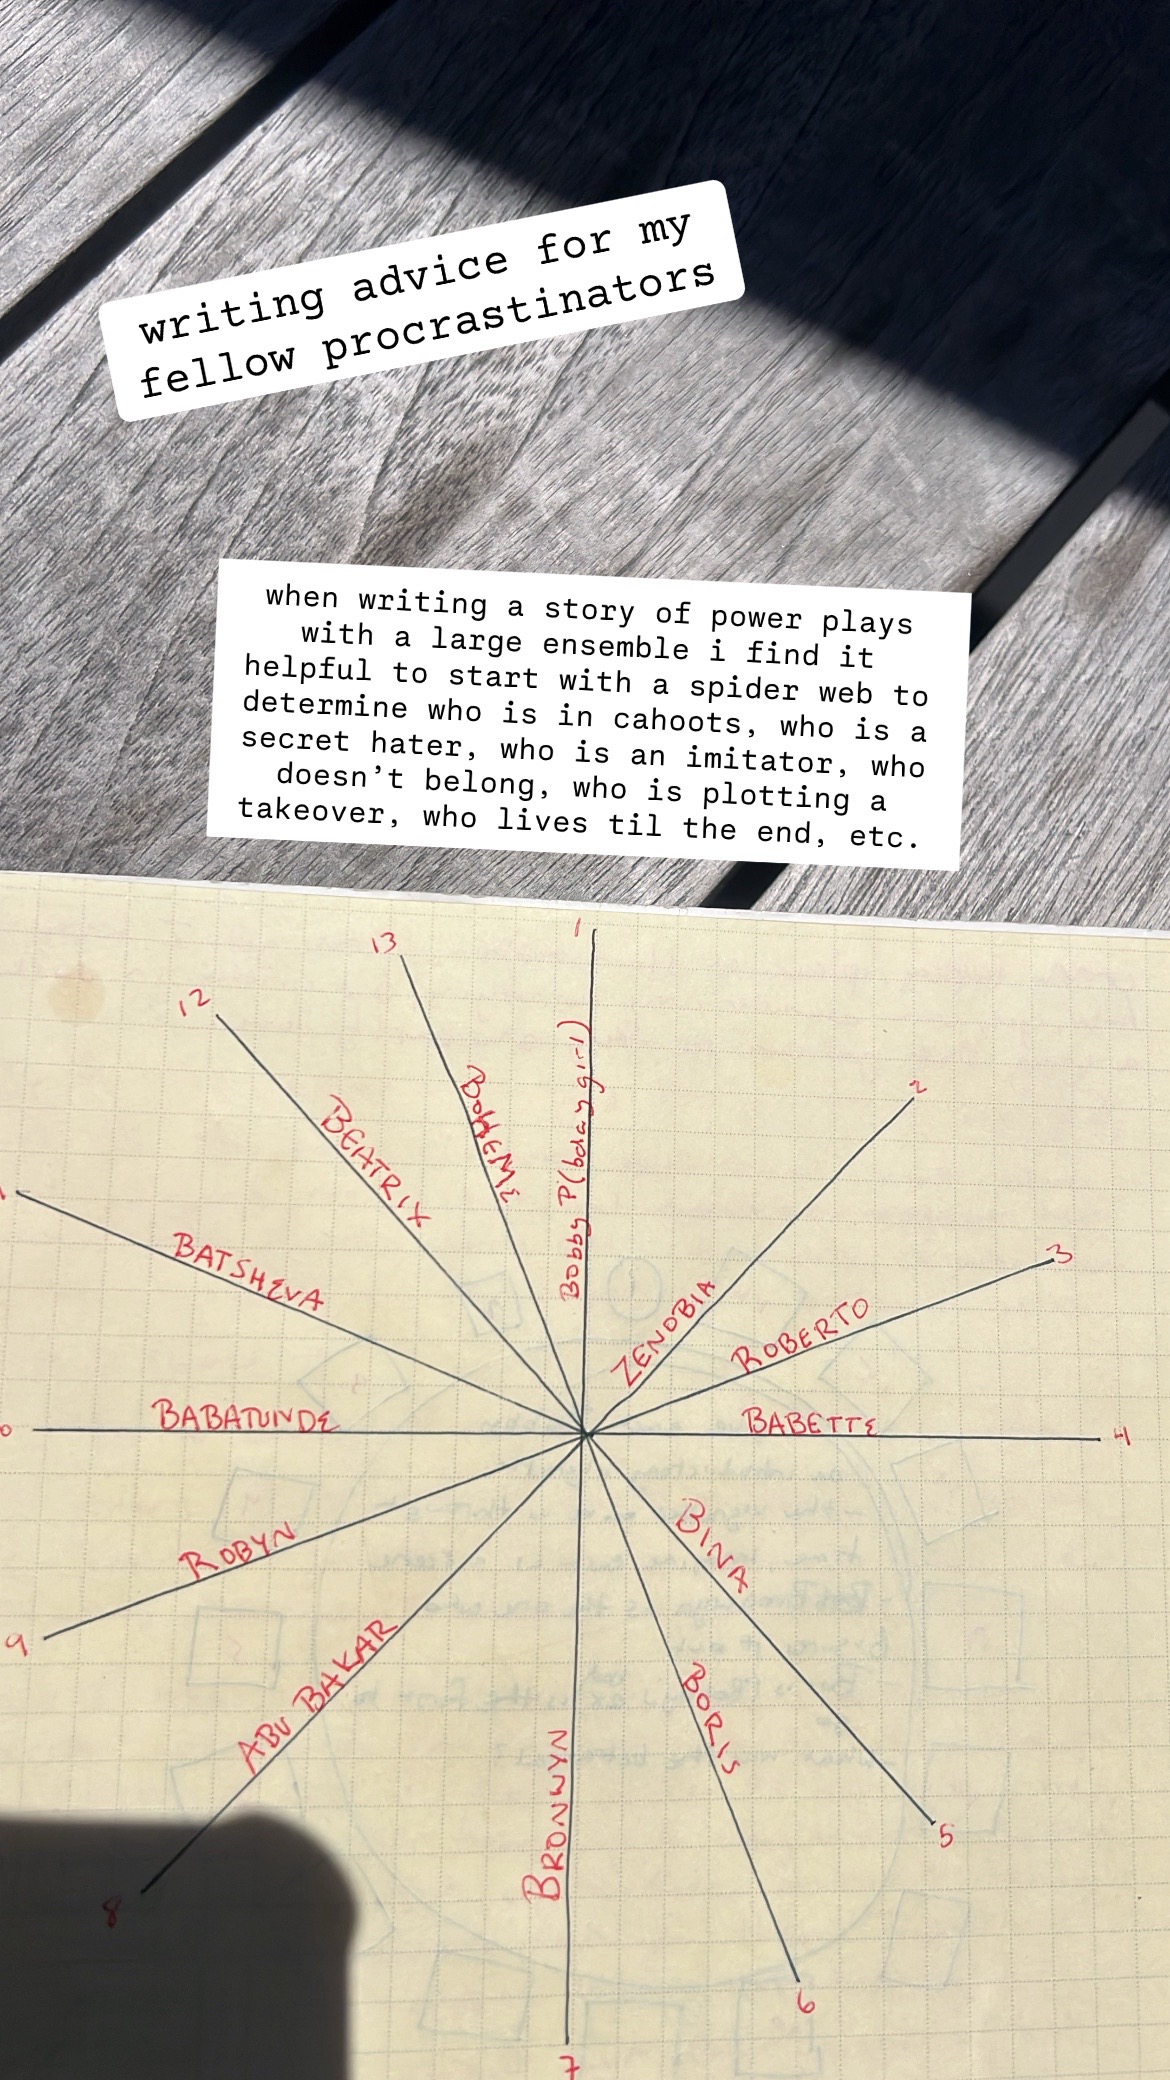 writing advice for my
fellow procrastinators
when writing a story of power plays
with a large ensemble i find it
helpful to start with a spider web to
determine who is in cahoots, who is a
secret hater, who is an imitator, who
doesn't belong, who is plotting a
takeover, who lives til the end, etc.
1
Bobby P (bday girl)
2
ZENOBIA
3
ROBERTO
4
BABETTE
5
BINA
6
BORIS
7
BRONWYN
8
ABU BAKAR
9
ROBYN
0
BABATUNDE
1
BATSHEVA
12
BEATRIX
13
BOHEME